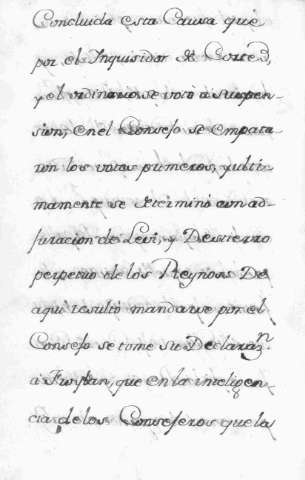 Concluida esta Causa que
por el Inquisidor de Corte,
y el ordinario se votó á suspen-
sion, en el Consejo se empata
ron los votos primeros, y ulti
mamente se determinó con ab-
juracion de Levi, y Destierro
perpetuo de los Reynos. De
aqui resultó mandarse por el
Consejo se tome su Declaraz.n
á Fustan, que en la inteligen
cia, de los Consejeros que la